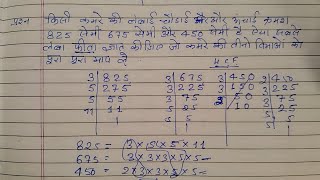 प्रश्न किसी कमरे की लंबाई चौड़ाई और ऊंचाई क्रमशः
825 सेमी 675 सेमी और 450 सेमी है ऐसा सबसे
लंबा फीता ज्ञात कीजिए जो कमरे की तीनों विमाओं को
पूरा पूरा माप ले
3 825 3 675 3 450
5 275 3 225 3 150
5 55 3 75
11 11 5 25
1 5 5
825 = 3×5×5×11
675 = 3×3×3×5×5
450 = 2×3×3×5×5